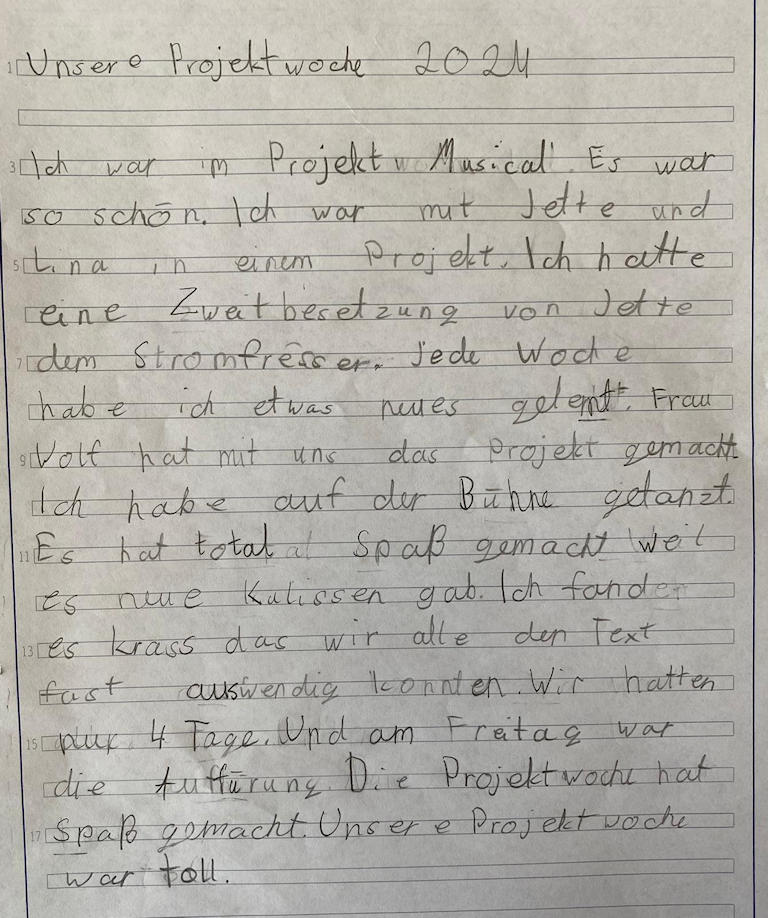 Unsere Projektwoche 2024
Ich war im Projekt Musical. Es war
so schön. Ich war mit Jette und
Lina in einem Projekt. Ich hatte
eine Zweitbesetzung von Jette
dem Stromfresser. Jede Woche
habe ich etwas neues gelernt. Frau
Wolf hat mit uns das Projekt gemacht
Ich habe auf der Bühne getanzt.
Es hat total Spaß gemacht weil
es neue Kulissen gab. Ich fand
es krass das wir alle den Text
fast auswendig konnten. Wir hatten
nur 4 Tage. Und am Freitag war
die Auffürung. Die Projektwoche hat
Spaß gemacht. Unsere Projektwoche
war toll.